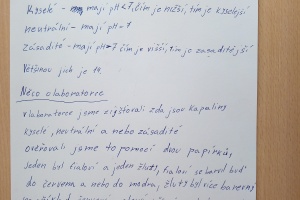 Kyselé - mají pH<7, čím je nižší, tím je kyselejší
neutrální - mají pH=7
Zásadité - mají pH>7 čím je višší, tím je zásaditější
Většinou jich je 14
Něco o laboratorce
V laboratorce jsme zjišťovali zda jsou kapaliny
kyselé, neutrální a nebo zásadité
Ověřovali jsme to pomocí dvou papírků,
jeden byl fialoví a jeden žlutý, fialoví se barvil buď
do červena a nebo do modra, žlutý byl více barevný